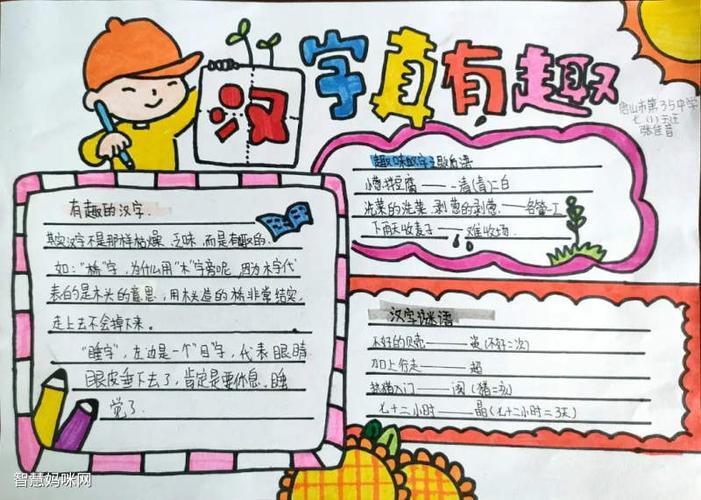 汉字真有趣
唐山市第35中学
七(1)
张佳音
有趣的汉字.
其实汉字不是那样枯燥、乏味,而是有趣的.
如:“桥”字,为什么用“木”字旁呢,因为木字代
表的是木头的意思,用木头造的桥非常结实,
走上去不会掉下来。
“睡字”,左边是一个“目”字,代表眼睛
眼皮垂下去了,肯定是要休息、睡
觉了.
趣味歇后语
小葱拌豆腐——一清(青)二白
洗菜的洗菜,剥葱的剥葱——各管一工
下雨天收麦子——难收场
汉字谜语
不好的贝壳——
加上行走——超
入门——阂
七十二小时——晶(七十二小时=3天)
智慧妈咪网